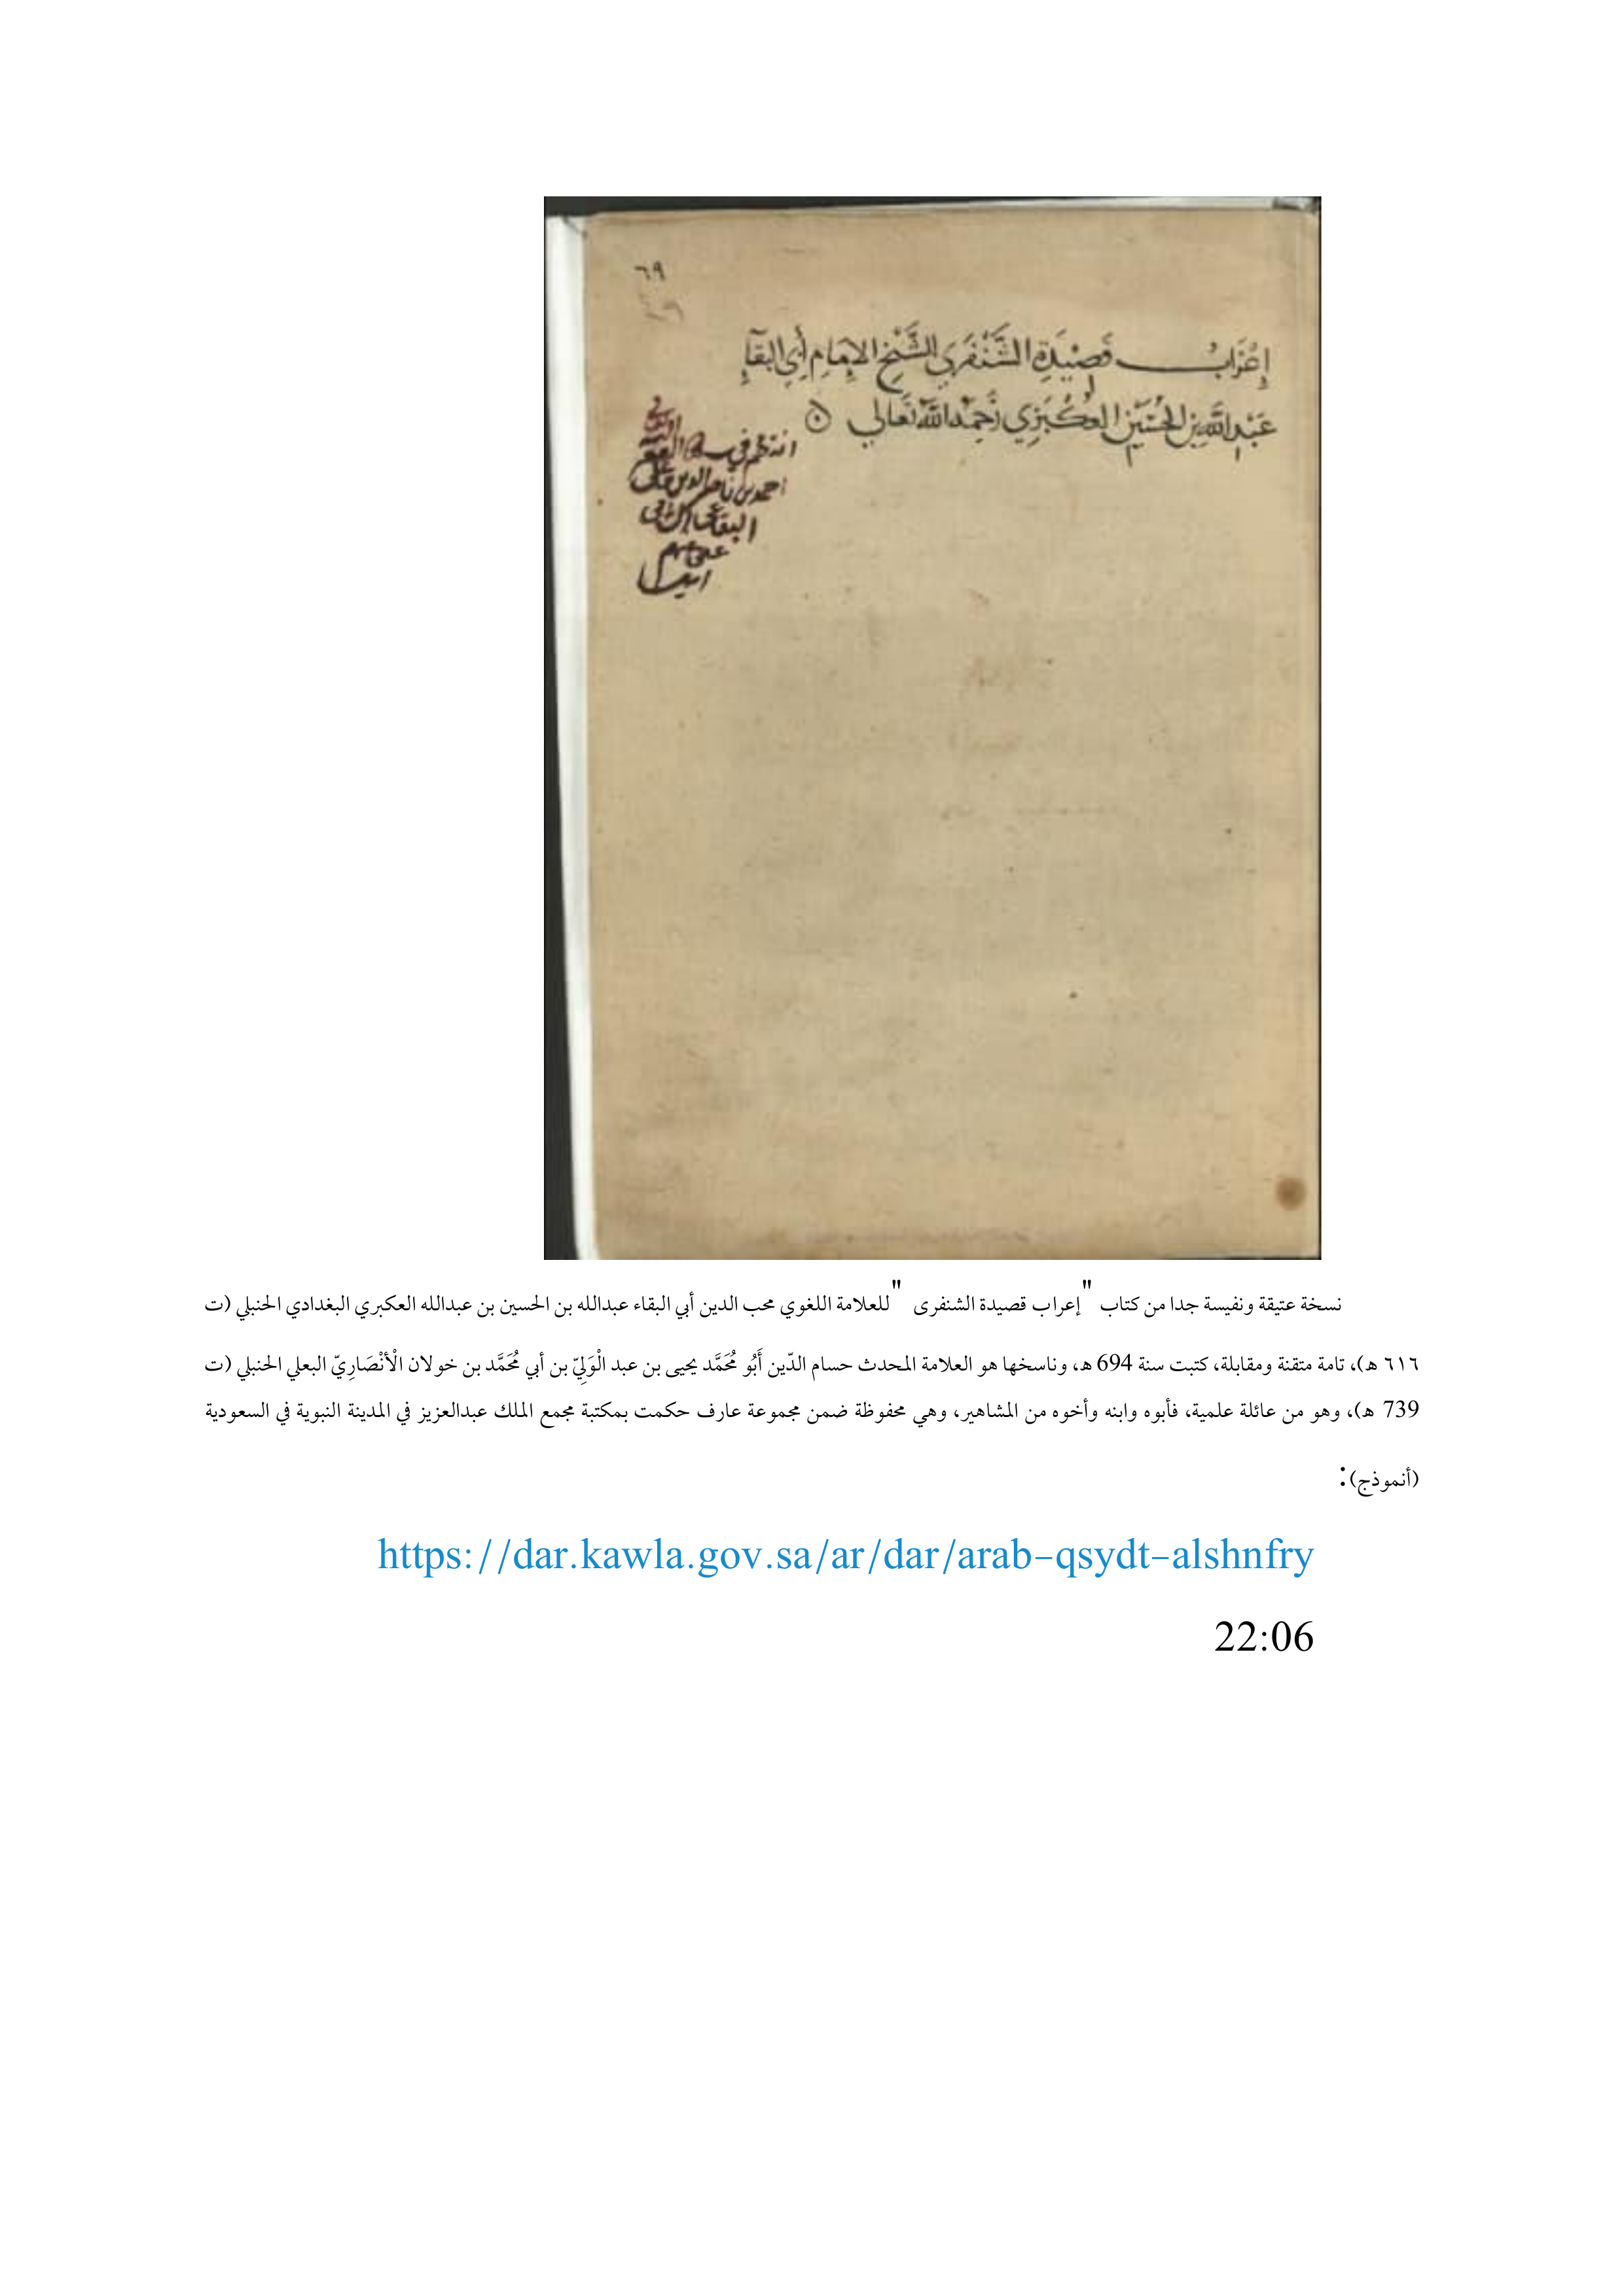 ٦٩
إعْرَابُ قَصِيْدَةِ الشَّنْفَرِي الشَّيْخِ الإِمَامِ أَبِي البَقَآءِ
عَبْدِ اللهِ بْنِ الحُسَيْنِ العُكْبَرِي رَحِمَهُ اللهُ تَعَالَى
انتظم في
احمد بن ناصر الدين
البقاعي الشافعي
نسخة عتيقة ونفيسة جدا من كتاب "إعراب قصيدة الشنفرى "للعلامة اللغوي محب الدين أبي البقاء عبدالله بن الحسين بن عبدالله العكبري البغدادي الحنبلي (ت
٦١٦ هـ)، تامة متقنة ومقابلة، كتبت سنة 694 هـ، وناسخها هو العلامة المحدث حسام الدّين أَبُو مُحَمَّد يحيى بن عبد الْوَلِيّ بن أبي مُحَمَّد بن خولان الْأنْصَارِيّ البعلي الحنبلي (ت
739 هـ)، وهو من عائلة علمية، فأبوه وابنه وأخوه من المشاهير، وهي محفوظة ضمن مجموعة عارف حكمت بمكتبة مجمع الملك عبدالعزيز في المدينة النبوية في السعودية
(أنموذج):
https://dar.kawla.gov.sa/ar/dar/arab-qsydt-alshnfry
22:06